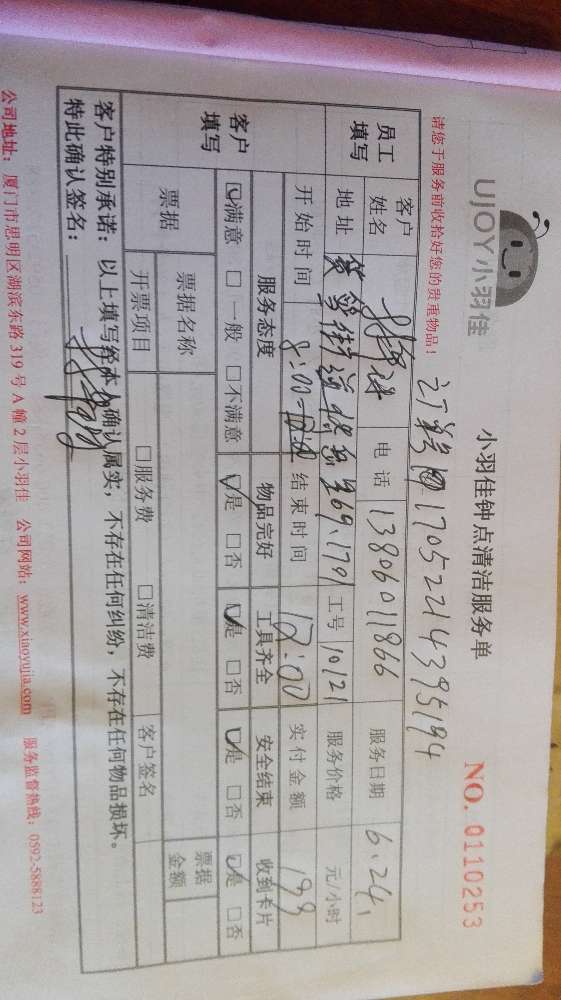 UJOY小羽佳
小羽佳钟点清洁服务单
NO. 0110253
请您于服务前收拾好您的贵重物品!
17052214395194
员工填写
客户姓名
电话 13806011866
服务日期 6.24.
地址
工号 10121
服务价格 元/小时
开始时间 8:00
结束时间 12:00
实付金额 199
客户填写
服务态度 物品完好 工具齐全 安全结束 收到卡片
☑满意 □一般 □不满意 ☑是 □否 ☑是 □否 ☑是 □否 ☑是 □否
票据 票据名称 票据金额
开票项目 □服务费 □清洁费 客户签名
客户特别承诺:以上填写经本人确认属实,不存在任何纠纷,不存在任何物品损坏。
特此确认签名:
公司地址:厦门市思明区湖滨东路319号A幢2层小羽佳 公司网站:www.xiaoyujia.com 服务监督热线:0592-5888123